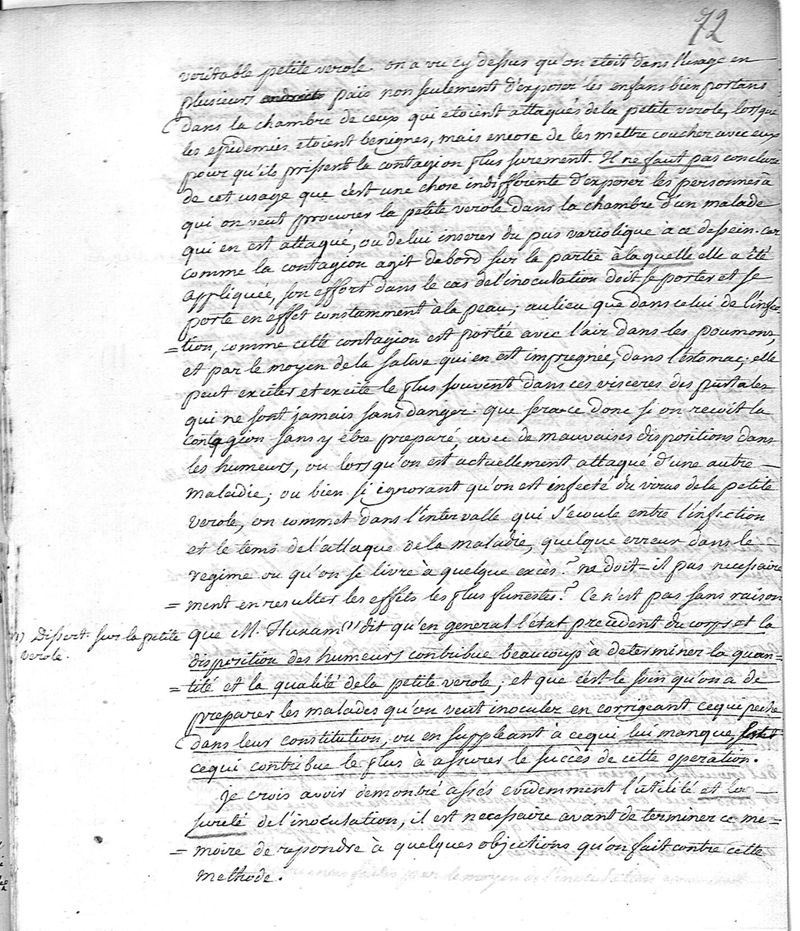 72
veritable petite verole. on a vu cy dessus qu'on etoit dans l'usage en
plusieurs endroits païs non seulement d'exposer les enfans bien portans
dans la chambre de ceux qui etoient attaqués de la petite verole, lorsque
les epidemies etoient benignes, mais encore de les mettre coucher avec eux
pour qu'ils prissent la contagion plus surement. Il ne faut pas conclure
de cet usage que c'est une chose indifferente d'exposer les personnes à
qui on veut procurer la petite verole dans la chambre d'un malade
qui en est attaqué, ou de lui inserer du pus variolique a ce dessein. car
comme la contagion agit d'abord sur la partie à laquelle elle a été
appliquée, son effort dans le cas de l'inoculation doit se porter et se
porte en effet constamment à la peau; au lieu que dans celui de l'infec
=tion, comme cette contagion est portée avec l'air dans les poumons,
et par le moyen de la salive qui en est impregnée, dans l'estomac; elle
peut exciter et excite le plus souvent dans ces visceres des pustules
qui ne sont jamais sans danger. que sera ce donc si on reçoit la
contagion sans y être preparé, avec de mauvaises dispositions dans
les humeurs, ou lorsqu'on est actuellement attaqué d'une autre
maladie; ou bien si ignorant qu'on est infecté du virus de la petite
verole, on commet dans l'intervalle qui s'ecoule entre l'infection
et le tems de l'attaque de la maladie, quelque erreur dans le
regime ou qu'on se livre à quelque excès? ne doit=il pas necessaire
=ment en resulter les effets les plus funestes? Ce n'est pas sans raison
(1) Dissert. sur la petite verole.
que M. Huxam (1) dit qu'en general l'état precedent du corps et la
disposition des humeurs contribue beaucoup à determiner la quan=
=tité et la qualité de la petite verole; et que c'est le soin qu'on a de
preparer les malades qu'on veut inoculer en corrigeant ce qui peche
dans leur constitution, ou en suppleant à ce qui lui manque,
ce qui contribue le plus à assurer le succès de cette operation.
Je crois avoir demontré assés evidemment l'utilité et la
sureté de l'inoculation, il est necessaire avant de terminer ce me=
=moire de repondre à quelques objections qu'on fait contre cette
methode.